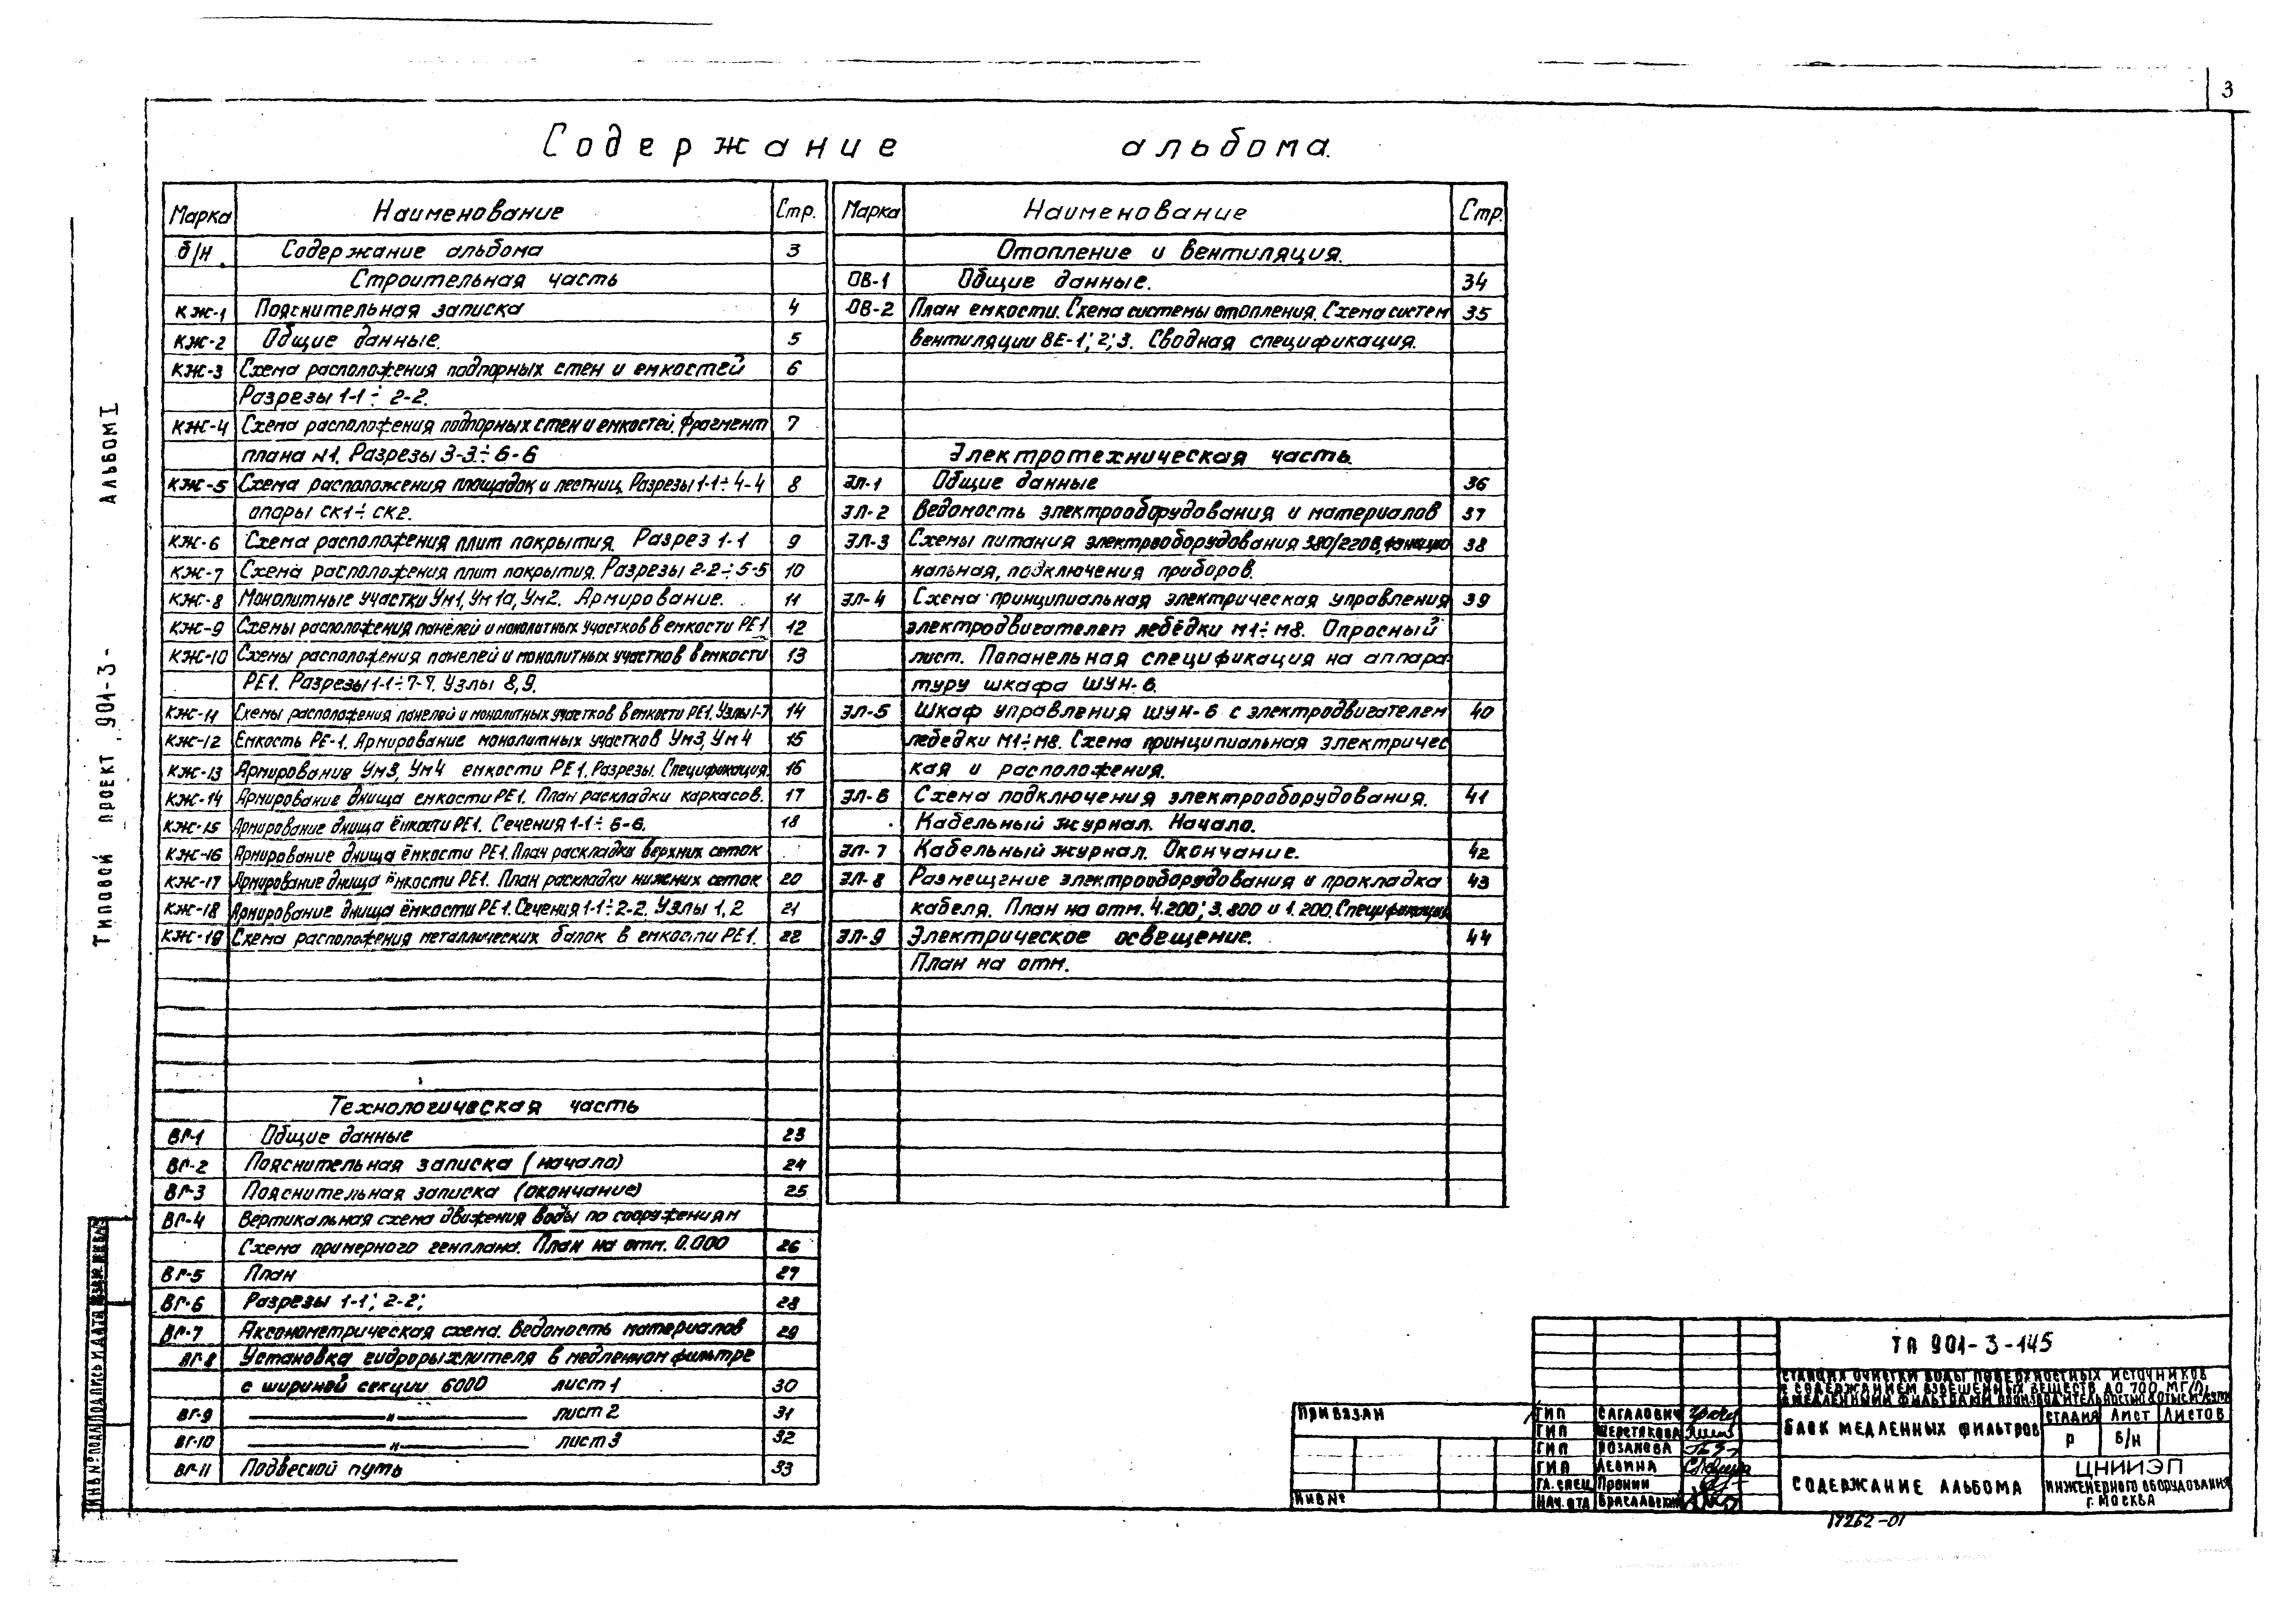 3
Содержание альбома.
Марка Наименование Стр.
б/н Содержание альбома 3
Строительная часть
КЖ-1 Пояснительная записка 4
КЖ-2 Общие данные. 5
КЖ-3 Схема расположения подпорных стен и емкостей 6
Разрезы 1-1÷2-2.
КЖ-4 Схема расположения подпорных стен и емкостей. Фрагмент 7
плана N1. Разрезы 3-3÷6-6
КЖ-5 Схема расположения площадок и лестниц. Разрезы 1-1÷4-4 8
опоры СК1÷СК2.
КЖ-6 Схема расположения плит покрытия. Разрез 1-1 9
КЖ-7 Схема расположения плит покрытия. Разрезы 2-2÷5-5 10
КЖ-8 Монолитные участки Ум1, Ум1а, Ум2. Армирование. 11
КЖ-9 Схемы расположения панелей и монолитных участков в емкости РЕ1 12
КЖ-10 Схемы расположения панелей и монолитных участков в емкости 13
РЕ1. Разрезы 1-1÷7-7. Узлы 8,9.
КЖ-11 Схемы расположения панелей и монолитных участков в емкости РЕ1. Узлы 1-7 14
КЖ-12 Емкость РЕ-1. Армирование монолитных участков Ум3, Ум4 15
КЖ-13 Армирование Ум3, Ум4 емкости РЕ1. Разрезы. Спецификация. 16
КЖ-14 Армирование днища емкости РЕ1. План раскладки каркасов. 17
КЖ-15 Армирование днища ёмкости РЕ1. Сечения 1-1÷6-6. 18
КЖ-16 Армирование днища ёмкости РЕ1. План раскладки верхних сеток
КЖ-17 Армирование днища ёмкости РЕ1. План раскладки нижних сеток 20
КЖ-18 Армирование днища ёмкости РЕ1. Сечения 1-1÷2-2. Узлы 1,2 21
КЖ-19 Схема расположения металлических балок в емкости РЕ1. 22
Технологическая часть
ВГ-1 Общие данные 23
ВГ-2 Пояснительная записка (начало) 24
ВГ-3 Пояснительная записка (окончание) 25
ВГ-4 Вертикальная схема движения воды по сооружениям
Схема примерного генплана. План на отм. 0.000 26
ВГ-5 План 27
ВГ-6 Разрезы 1-1; 2-2; 28
ВГ-7 Аксонометрическая схема. Ведомость материалов 29
ВГ-8 Установка гидрорыхлителя в медленном фильтре
с шириной секции 6000 лист 1 30
ВГ-9 —〃— лист 2 31
ВГ-10 —〃— лист 3 32
ВГ-11 Подвесной путь 33
Марка Наименование Стр.
Отопление и вентиляция.
ОВ-1 Общие данные. 34
ОВ-2 План емкости. Схема системы отопления. Схема систем 35
вентиляции ВЕ-1; 2; 3. Сводная спецификация.
Электротехническая часть.
ЭЛ-1 Общие данные 36
ЭЛ-2 Ведомость электрооборудования и материалов 37
ЭЛ-3 Схемы питания электрооборудования 380/220В, 38
нальная, подключения приборов.
ЭЛ-4 Схема принципиальная электрическая управления 39
электродвигателем лебёдки М1÷М8. Опросный
лист. Попанельная спецификация на аппара-
туру шкафа ШУН-6.
ЭЛ-5 Шкаф управления ШУН-6 с электродвигателем 40
лебедки М1÷М8. Схема принципиальная электричес
кая и расположения.
ЭЛ-6 Схема подключения электрооборудования. 41
Кабельный журнал. Начало.
ЭЛ-7 Кабельный журнал. Окончание. 42
ЭЛ-8 Размещение электрооборудования и прокладка 43
кабеля. План на отм. 4.200; 3.800 и 1.200. Спецификация
ЭЛ-9 Электрическое освещение. 44
План на отм.
Типовой проект 901-3- Альбом I
ИНВ.№ПОДЛ. ПОДПИСЬ И ДАТА ВЗАМ.ИНВ.№
ТП 901-3-145
СТАНЦИЯ ОЧИСТКИ ВОДЫ ПОВЕРХНОСТНЫХ ИСТОЧНИКОВ
С СОДЕРЖАНИЕМ ВЗВЕШЕННЫХ ВЕЩЕСТВ ДО 700 МГ/Л,
С МЕДЛЕННЫМИ ФИЛЬТРАМИ ПРОИЗВОДИТЕЛЬНОСТЬЮ
ПРИВЯЗАН
ИНВ №
ГИП САГАЛОВИЧ
ГИП ШЕРСТЯКОВА
ГИП РОЗАНОВА
ГИП ЛЕВИНА
ГЛ. СПЕЦ. ПРОНИН
НАЧ. ОТД.
БЛОК МЕДЛЕННЫХ ФИЛЬТРОВ
СТАДИЯ ЛИСТ ЛИСТОВ
Р Б/Н
СОДЕРЖАНИЕ АЛЬБОМА
ЦНИИЭП
ИНЖЕНЕРНОГО ОБОРУДОВАНИЯ
Г. МОСКВА
17262-01